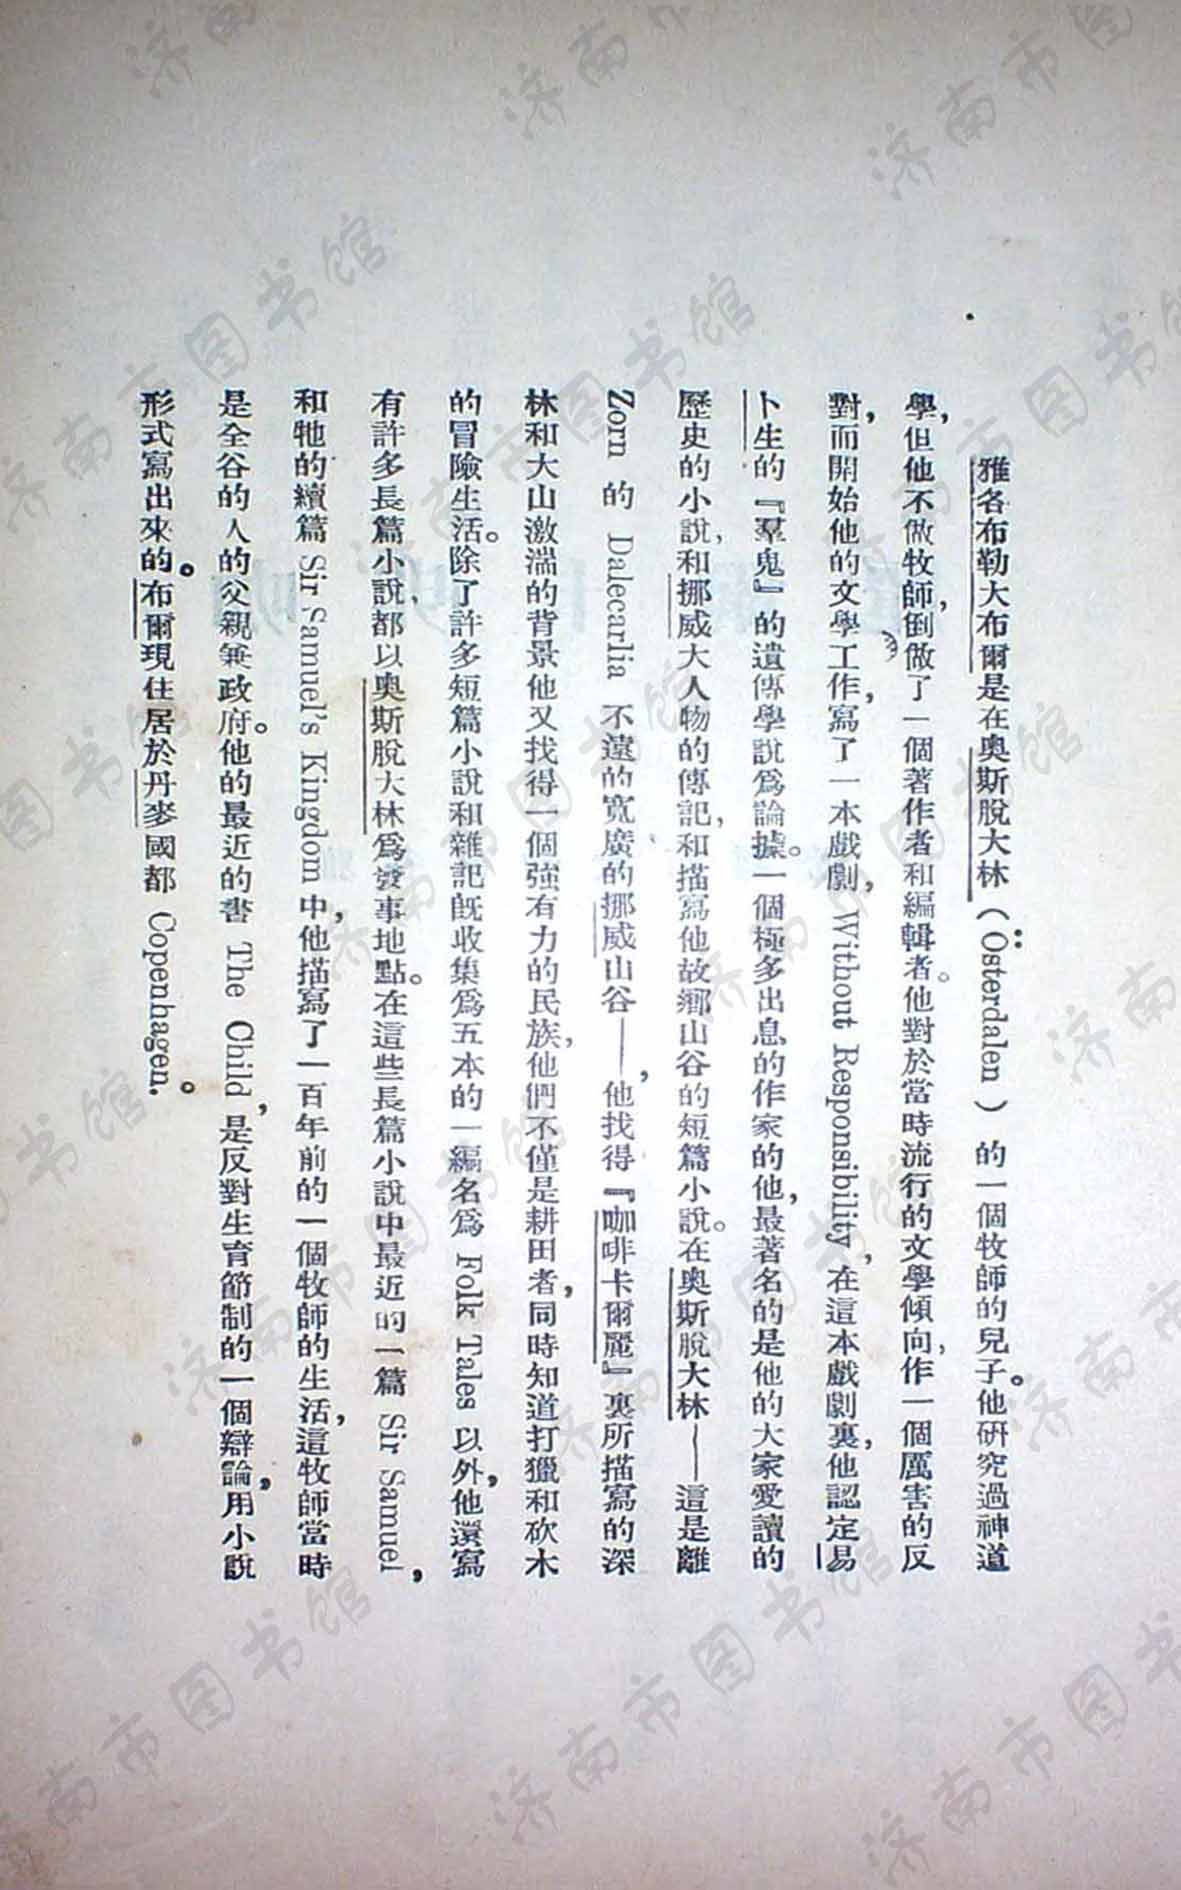 雅各布勒大布爾是在奥斯脫大林（Österdalen）的一個牧師的兒子。他研究過神道
學，但他不做牧師，倒做了一個著作者和編輯者。他對於當時流行的文學傾向，作一個厲害的反
對，而開始他的文學工作，寫了一本戲劇，Without Responsibility，在這本戲劇裏，他認定易
卜生的『羣鬼』的遺傳學說爲論據。一個極多出息的作家的他，最著名的是他的大家愛讀的
歷史的小說，和挪威大人物的傳記，和描寫他故鄉山谷的短篇小說。在奥斯脫大林——這是離
Zorn 的 Dalecarlia 不遠的寬廣的挪威山谷——，他找得『咖啡卡爾麗』裏所描寫的深
林和大山激湍的背景他又找得一個強有力的民族，他們不僅是耕田者，同時知道打獵和砍木
的冒險生活。除了許多短篇小說和雜記旣收集爲五本的一編名爲 Folk Tales 以外，他還寫
有許多長篇小說，都以奥斯脫大林爲發事地點。在這些長篇小說中最近的一篇 Sir Samuel，
和牠的續篇 Sir Samuel's Kingdom 中，他描寫了一百年前的一個牧師的生活，這牧師當時
是全谷的人的父親兼政府。他的最近的書 The Child，是反對生育節制的一個辯論，用小說
形式寫出來的。布爾現住居於丹麥國都 Copenhagen.。
济南市图书馆